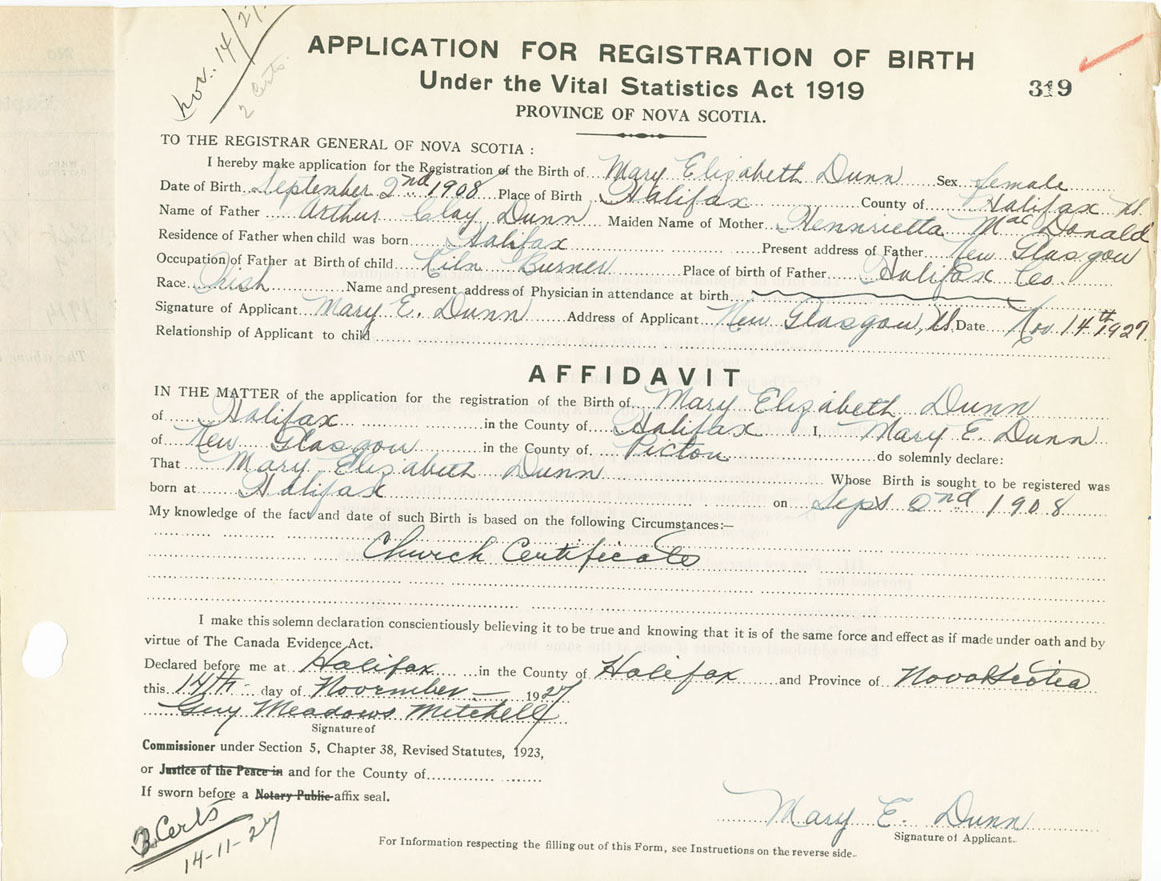 Nov. 14/27.
2 Certs.
APPLICATION FOR REGISTRATION OF BIRTH
Under the Vital Statistics Act 1919
319
PROVINCE OF NOVA SCOTIA.
TO THE REGISTRAR GENERAL OF NOVA SCOTIA :
I hereby make application for the Registration of the Birth of Mary Elizabeth Dunn Sex female
Date of Birth September 2nd 1908 Place of Birth Halifax County of Halifax N.S.
Name of Father Arthur Clay Dunn Maiden Name of Mother Henrrietta MacDonald
Residence of Father when child was born Halifax Present address of Father New Glasgow
Occupation of Father at Birth of child Kiln Burner Place of birth of Father Halifax Co.
Race Irish Name and present address of Physician in attendance at birth
Signature of Applicant Mary E. Dunn Address of Applicant New Glasgow, N.S. Date Nov. 14th 1927.
Relationship of Applicant to child
AFFIDAVIT
IN THE MATTER of the application for the registration of the Birth of Mary Elizabeth Dunn
of Halifax in the County of Halifax I, Mary E. Dunn
of New Glasgow in the County of Pictou do solemnly declare:
That Mary Elizabeth Dunn Whose Birth is sought to be registered was
born at Halifax on Sept 2nd 1908
My knowledge of the fact and date of such Birth is based on the following Circumstances:—
Church Certificate
I make this solemn declaration conscientiously believing it to be true and knowing that it is of the same force and effect as if made under oath and by
virtue of The Canada Evidence Act.
Declared before me at Halifax in the County of Halifax and Province of Nova Scotia
this 14th day of November 1927
Guy Meadows Mitchell
Signature of
Commissioner under Section 5, Chapter 38, Revised Statutes, 1923,
or Justice of the Peace in and for the County of
If sworn before a Notary Public affix seal.
Mary E. Dunn
Signature of Applicant.
2 Certs
14-11-27
For Information respecting the filling out of this Form, see Instructions on the reverse side.